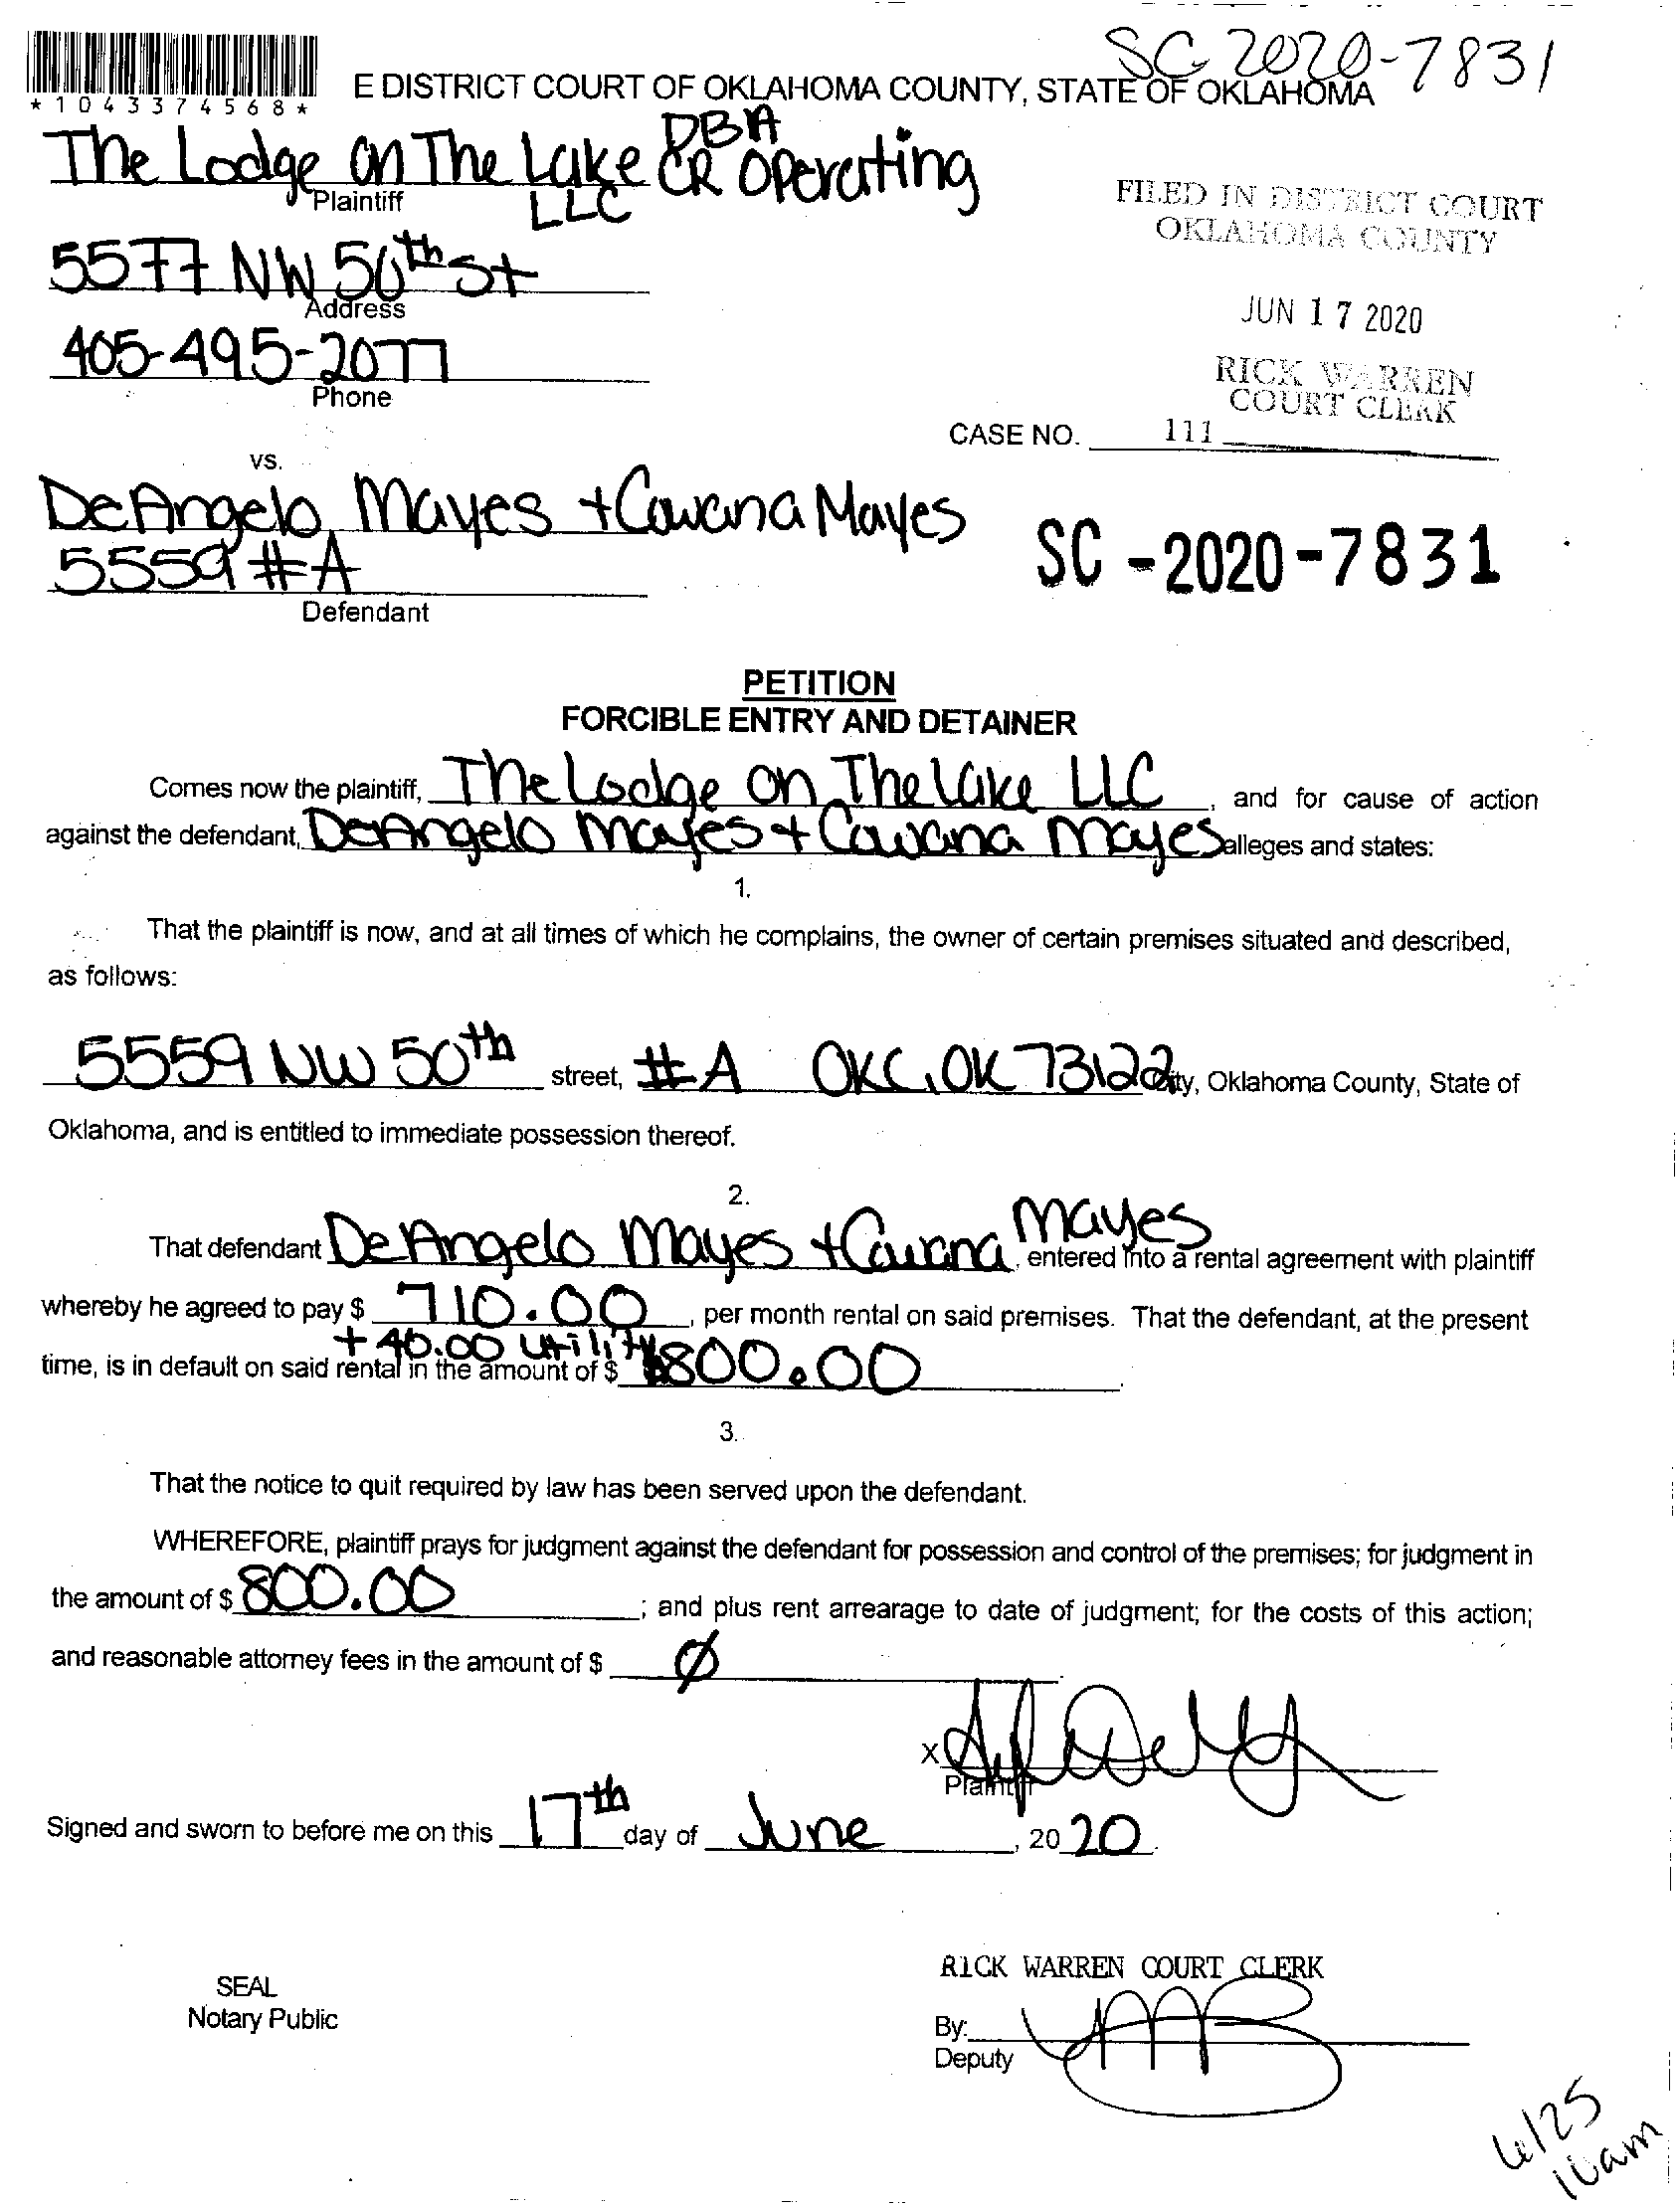 SC-2020-7831
*1043374568*
E DISTRICT COURT OF OKLAHOMA COUNTY, STATE OF OKLAHOMA
The Lodge on The Lake DBA
LLC CR Operating
Plaintiff
5577 NW 50th St
Address
405-495-2077
Phone
FILED IN DISTRICT COURT
OKLAHOMA COUNTY
JUN 17 2020
RICK WARREN
COURT CLERK
CASE NO. 111
vs.
DeAngelo Mayes + Cawana Mayes
5559 #A
Defendant
SC -2020-7831
PETITION
FORCIBLE ENTRY AND DETAINER
Comes now the plaintiff, The Lodge on The Lake LLC, and for cause of action
against the defendant, DeAngelo Mayes + Cawana Mayes alleges and states:
1.
That the plaintiff is now, and at all times of which he complains, the owner of certain premises situated and described,
as follows:
5559 NW 50th street, #A OKC, OK 73122 City, Oklahoma County, State of
Oklahoma, and is entitled to immediate possession thereof.
2.
That defendant DeAngelo Mayes + Cawana Mayes, entered into a rental agreement with plaintiff
whereby he agreed to pay $ 710.00, per month rental on said premises. That the defendant, at the present
+ 40.00 utility
time, is in default on said rental in the amount of $ 800.00.
3.
That the notice to quit required by law has been served upon the defendant.
WHEREFORE, plaintiff prays for judgment against the defendant for possession and control of the premises; for judgment in
the amount of $ 800.00; and plus rent arrearage to date of judgment; for the costs of this action;
and reasonable attorney fees in the amount of $ Ø.
X
Plaintiff
Signed and sworn to before me on this 17th day of June, 2020.
RICK WARREN COURT CLERK
SEAL
Notary Public
By:
Deputy
6/25
10am